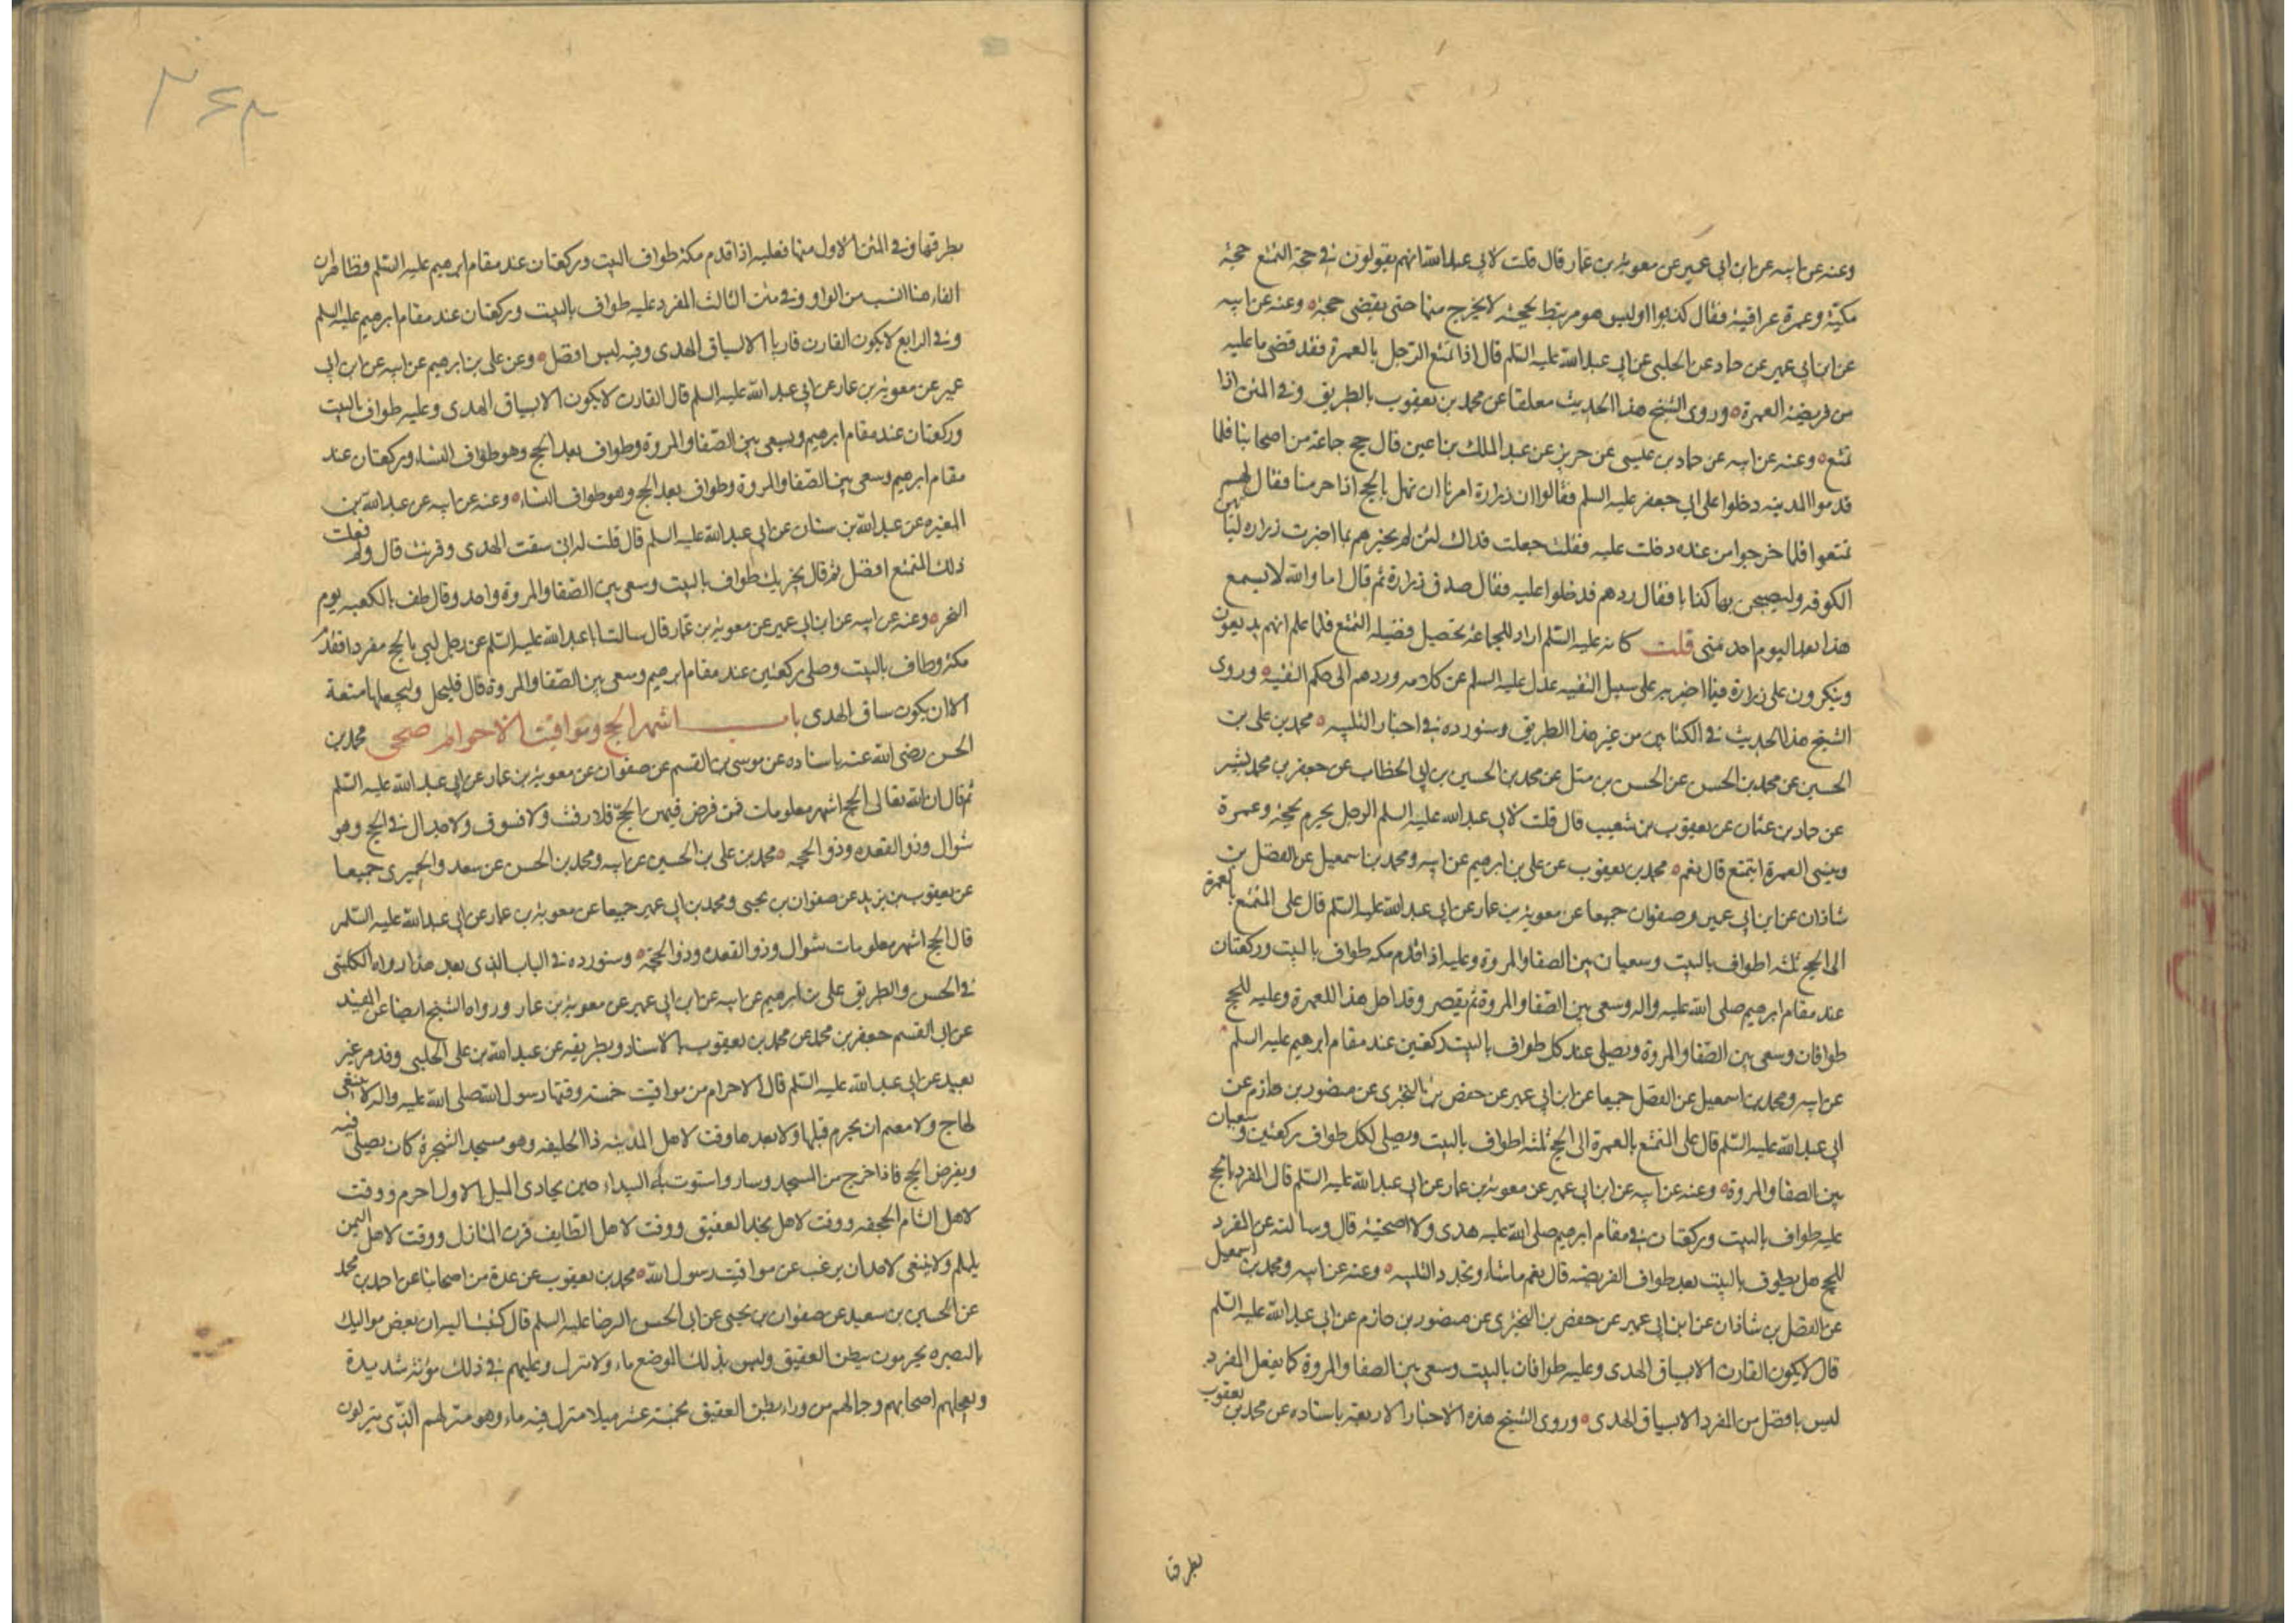 وعنه عن ابيه عن ابن ابي عمير عن معوية بن عمار قال قلت لابي عبدالله انهم يقولون في حجة التمتع حجة
مكية وعمرة عراقية فقال كذبوا اوليس هو مرتبط بحجته لا يخرج منها حتى يقضى حجته ه وعنه عن ابيه
عن ابن ابي عمير عن حماد عن الحلبي عن ابي عبد الله عليه السلم قال اذا تمتع الرجل بالعمرة فقد قضى ما عليه
من فريضة العمرة ه وروى الشيخ هذا الحديث معلقا عن محمد بن يعقوب بالطريق وفي المتن اذا
تمتع ه وعنه عن ابيه عن حماد بن عيسى عن حريز عن عبد الملك بن اعين قال حج جماعة من اصحابنا فلما
قدموا المدينه دخلوا على ابي جعفر عليه السلم فقالوا ان زرارة امرنا ان نهل بالحج اذا احرمنا فقال لهم
تمتعوا فلما خرجوا من عنده دخلت عليه فقلت جعلت فداك لئن لم تخبرهم بما اخبرت زراره لياتين
الكوفه وليصبحن بها كذابا فقال ردهم فدخلوا عليه فقال صدق زرارة ثم قال اما والله لا يسمع
هذا بعد اليوم احد منى قلت كانه عليه السلم اراد للجماعة تحصيل فضيله التمتع فلما علم انهم يذيعون
وينكرون على زرارة فيما اخبر به على سبيل التقيه عدل عليه السلم عن كلامه وردهم الى حكم التقية ه وروى
الشيخ هذا الحديث في الكتابين من غير هذا الطريق وسنورده في اخبار التلبيه ه محمد بن على بن
الحسين عن محمد بن الحسن عن الحسن بن متيل عن محمد بن الحسين بن ابي الخطاب عن جعفر بن محمد بشير
عن حماد بن عثمان عن يعقوب بن شعيب قال قلت لابي عبد الله عليه السلم الرجل يحرم بحجة وعمرة
وينسى العمرة ايتمتع قال نعم ه محمد بن يعقوب عن على بن ابرهيم عن ابيه ومحمد بن اسمعيل عن الفضل بن
شاذان عن ابن ابي عمير وصفوان جميعا عن معوية بن عمار عن ابي عبد الله عليه السلم قال على المتمتع بالعمرة
الى الحج ثلثه اطواف بالبيت وسعيان بين الصفا والمروة وعليه اذا قدم مكه طواف بالبيت وركعتان
عند مقام ابرهيم صلى الله عليه واله وسعى بين الصفا والمروة ثم يقصر وقد احل هذا للعمرة وعليه للحج
طوافان وسعى بين الصفا والمروة ويصلى عند كل طواف بالبيت ركعتين عند مقام ابرهيم عليه السلم ه
عن ابيه ومحمد بن اسمعيل عن الفضل جميعا عن ابن ابي عمير عن حفص بن البخترى عن منصور بن حازم عن
ابي عبد الله عليه السلم قال على المتمتع بالعمرة الى الحج ثلثه اطواف بالبيت ويصلى لكل طواف ركعتين وسعيان
بين الصفا والمروة ه وعنه عن ابيه عن ابن ابي عمير عن معوية بن عمار عن ابي عبد الله عليه السلم قال المفرد بالحج
عليه طواف بالبيت وركعتان في مقام ابرهيم صلى الله عليه هدى ولا اضحية قال وسالته عن المفرد
للحج هل يطوف بالبيت بعد طواف الفريضه قال نعم ما شاء وتجدد التلبيه ه وعنه عن ابيه ومحمد بن اسمعيل
عن الفضل بن شاذان عن ابن ابي عمير عن حفص بن البخترى عن منصور بن حازم عن ابي عبد الله عليه السلم
قال لا يكون القارن الا بسياق الهدى وعليه طوافان بالبيت وسعى بين الصفا والمروة كما يفعل المفرد
ليس بافضل من المفرد الا بسياق الهدى ه وروى الشيخ هذه الاخبار الاربعة باسناده عن محمد بن يعقوب
بطرقها
٣٤٣
بطرقها وفي المتن الاول منها فعليه اذا قدم مكة طواف البيت وركعتان عند مقام ابرهيم عليه السلم وظاهر ان
الفاء هنا انسب من الواو وفي متن الثالث المفرد عليه طواف بالبيت وركعتان عند مقام ابرهيم عليه السلم
وفي الرابع لا يكون القارن قارنا الا بسياق الهدى وفيه ليس افضل ه وعن على بن ابرهيم عن ابيه عن ابن ابي
عمير عن معوية بن عمار عن ابي عبد الله عليه السلم قال القارن لا يكون الا بسياق الهدى وعليه طواف بالبيت
وركعتان عند مقام ابرهيم ويسعى بين الصفا والمروة وطواف بعد الحج وهو طواف النساء وركعتان عند
مقام ابرهيم وسعى بين الصفا والمروة وطواف بعد الحج وهو طواف النساء ه وعنه عن ابيه عن عبد الله بن
المغيره عن عبد الله بن سنان عن ابي عبد الله عليه السلم قال قلت له انى سقت الهدى وقرنت قال ولم فعلت
ذلك التمتع افضل ثم قال يجزيك طواف بالبيت وسعى بين الصفا والمروة واحد وقال طف بالكعبه يوم
النحر ه وعنه عن ابيه عن ابن ابي عمير عن معوية بن عمار قال سالت ابا عبد الله عليه السلم عن رجل لبى بالحج مفردا فقدم
مكة وطاف بالبيت وصلى ركعتين عند مقام ابرهيم وسعى بين الصفا والمروة قال فليحل وليجعلها متعة
الا ان يكون ساق الهدى باب اشهر الحج ومواقيت الاحرام صحى محمد بن
الحسن رضى الله عنه باسناده عن موسى بن القسم عن صفوان عن معوية بن عمار عن ابي عبد الله عليه السلم
ثم قال ان الله تعالى الحج اشهر معلومات فمن فرض فيهن الحج فلا رفث ولا فسوق ولا جدال في الحج وهو
شوال وذو القعده وذو الحجه ه محمد بن على بن الحسين عن ابيه ومحمد بن الحسن عن سعد والحميرى جميعا
عن يعقوب بن يزيد عن صفوان بن يحيى ومحمد بن ابي عمير جميعا عن معوية بن عمار عن ابي عبد الله عليه السلم
قال الحج اشهر معلومات شوال وذو القعده وذو الحجة ه وسنورده في الباب الذى بعد هذا رواه الكلينى
في الحسن والطريق على بن ابرهيم عن ابيه عن ابن ابي عمير عن معوية بن عمار ورواه الشيخ ايضا عن المفيد
عن ابي القسم جعفر بن محمد عن محمد بن يعقوب بالاسناد وبطريقه عن عبيد الله بن على الحلبي وقد مر غير
بعيد عن ابي عبد الله عليه السلم قال الاحرام من مواقيت خمسة وقتها رسول الله صلى الله عليه واله لا ينبغى
لحاج ولا معتمر ان يحرم قبلها ولا بعدها وقت لاهل المدينه ذا الحليفه وهو مسجد الشجرة كان يصلى فيه
ويفرض الحج فاذا خرج من المسجد وسار واستوت به البيداء حين يحاذى الميل الاول احرم ووقت
لاهل الشام الجحفه ووقت لاهل نجد العقيق ووقت لاهل الطايف قرن المنازل ووقت لاهل اليمن
يلملم ولا ينبغى لاحد ان يرغب عن مواقيت رسول الله ه محمد بن يعقوب عن عدة من اصحابنا عن احمد بن محمد
عن الحسين بن سعيد عن صفوان بن يحيى عن ابي الحسن الرضا عليه السلم قال كتبت اليه ان بعض مواليك
بالبصره يحرمون ببطن العقيق وليس بذلك الموضع ماء ولا منزل وعليهم في ذلك مؤنة شديدة
ويعجلهم اصحابهم وجمالهم من وراء بطن العقيق بخمسة عشر ميلا منزل فيه ماء وهو منزلهم الذى ينزلون